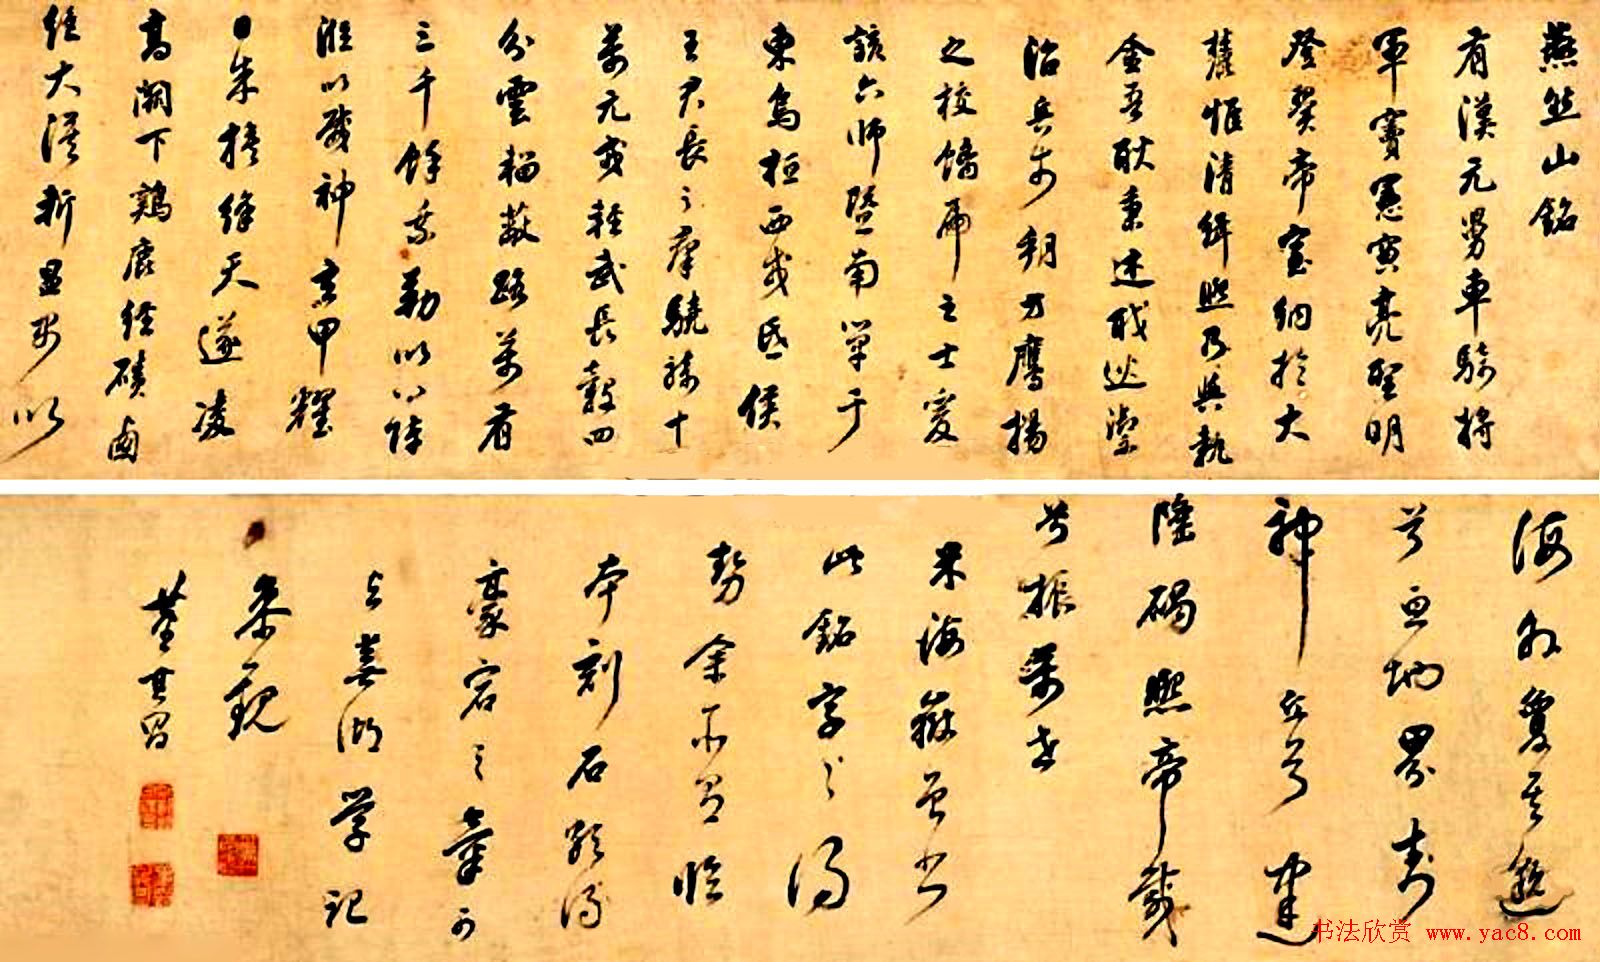 燕然山銘
有漢元舅車騎將
軍竇憲寅亮聖明
登翼帝室納於大
麓惟清緝熙乃與執
金吾耿秉述職巡禦
治兵於朔方鷹揚
之校螭虎之士爰
該六師暨南單于
東烏桓西戎氐侯
王君長之羣驍騎十
萬元戎輕武長轂四
分雲輜蔽路萬有
三千餘乘勒以八陣
蒞以威神玄甲耀
日朱旗絳天遂凌
高闕下雞鹿經磧鹵
絕大漠斬溫禺以
海外夐其邈
兮亙地界封
神丘兮建
隆碣熙帝載
兮振萬世
米海嶽曾書
此銘字字得
勢余 臨
本刻石頗得
豪宕之氣可
與蕪湖学記
參觀
董其昌
书法欣赏 www.yac8.com